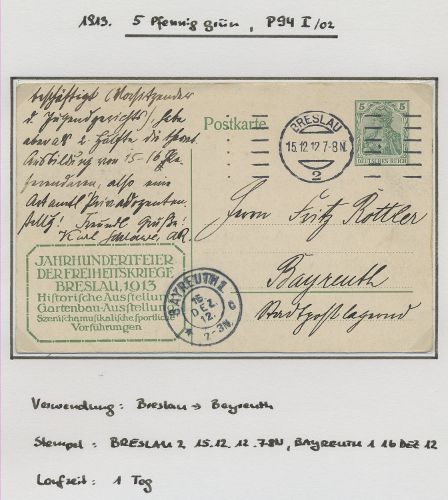 1913. 5 Pfennig grün, P94 I/02
beschäftigt (Vorsitzender
u. Jugendgerichts) habe
aber
2 Hälfte
Ausbildung von 15-16 Re
ferendaren, also eine
Art
Privatdozenten
stellg! Freundl Grüße!
Karl
Postkarte
BRESLAU
15.12.12.7-8N.
2
5 5
DEUTSCHES REICH
Herrn Fritz Rottler
Bayreuth
Stadtpostlagernd
JAHRHUNDERTFEIER
DER FREIHEITSKRIEGE
BRESLAU 1913
Historische Ausstellung
Gartenbau-Ausstellung
Szenische musikalische sportliche
Vorführungen
BAYREUTH 1
16.
DEZ.
12.
7-8N.
Verwendung: Breslau → Bayreuth
Stempel: BRESLAU 2 15.12.12.7-8N, BAYREUTH 1 16 DEZ 12
Laufzeit: 1 Tag